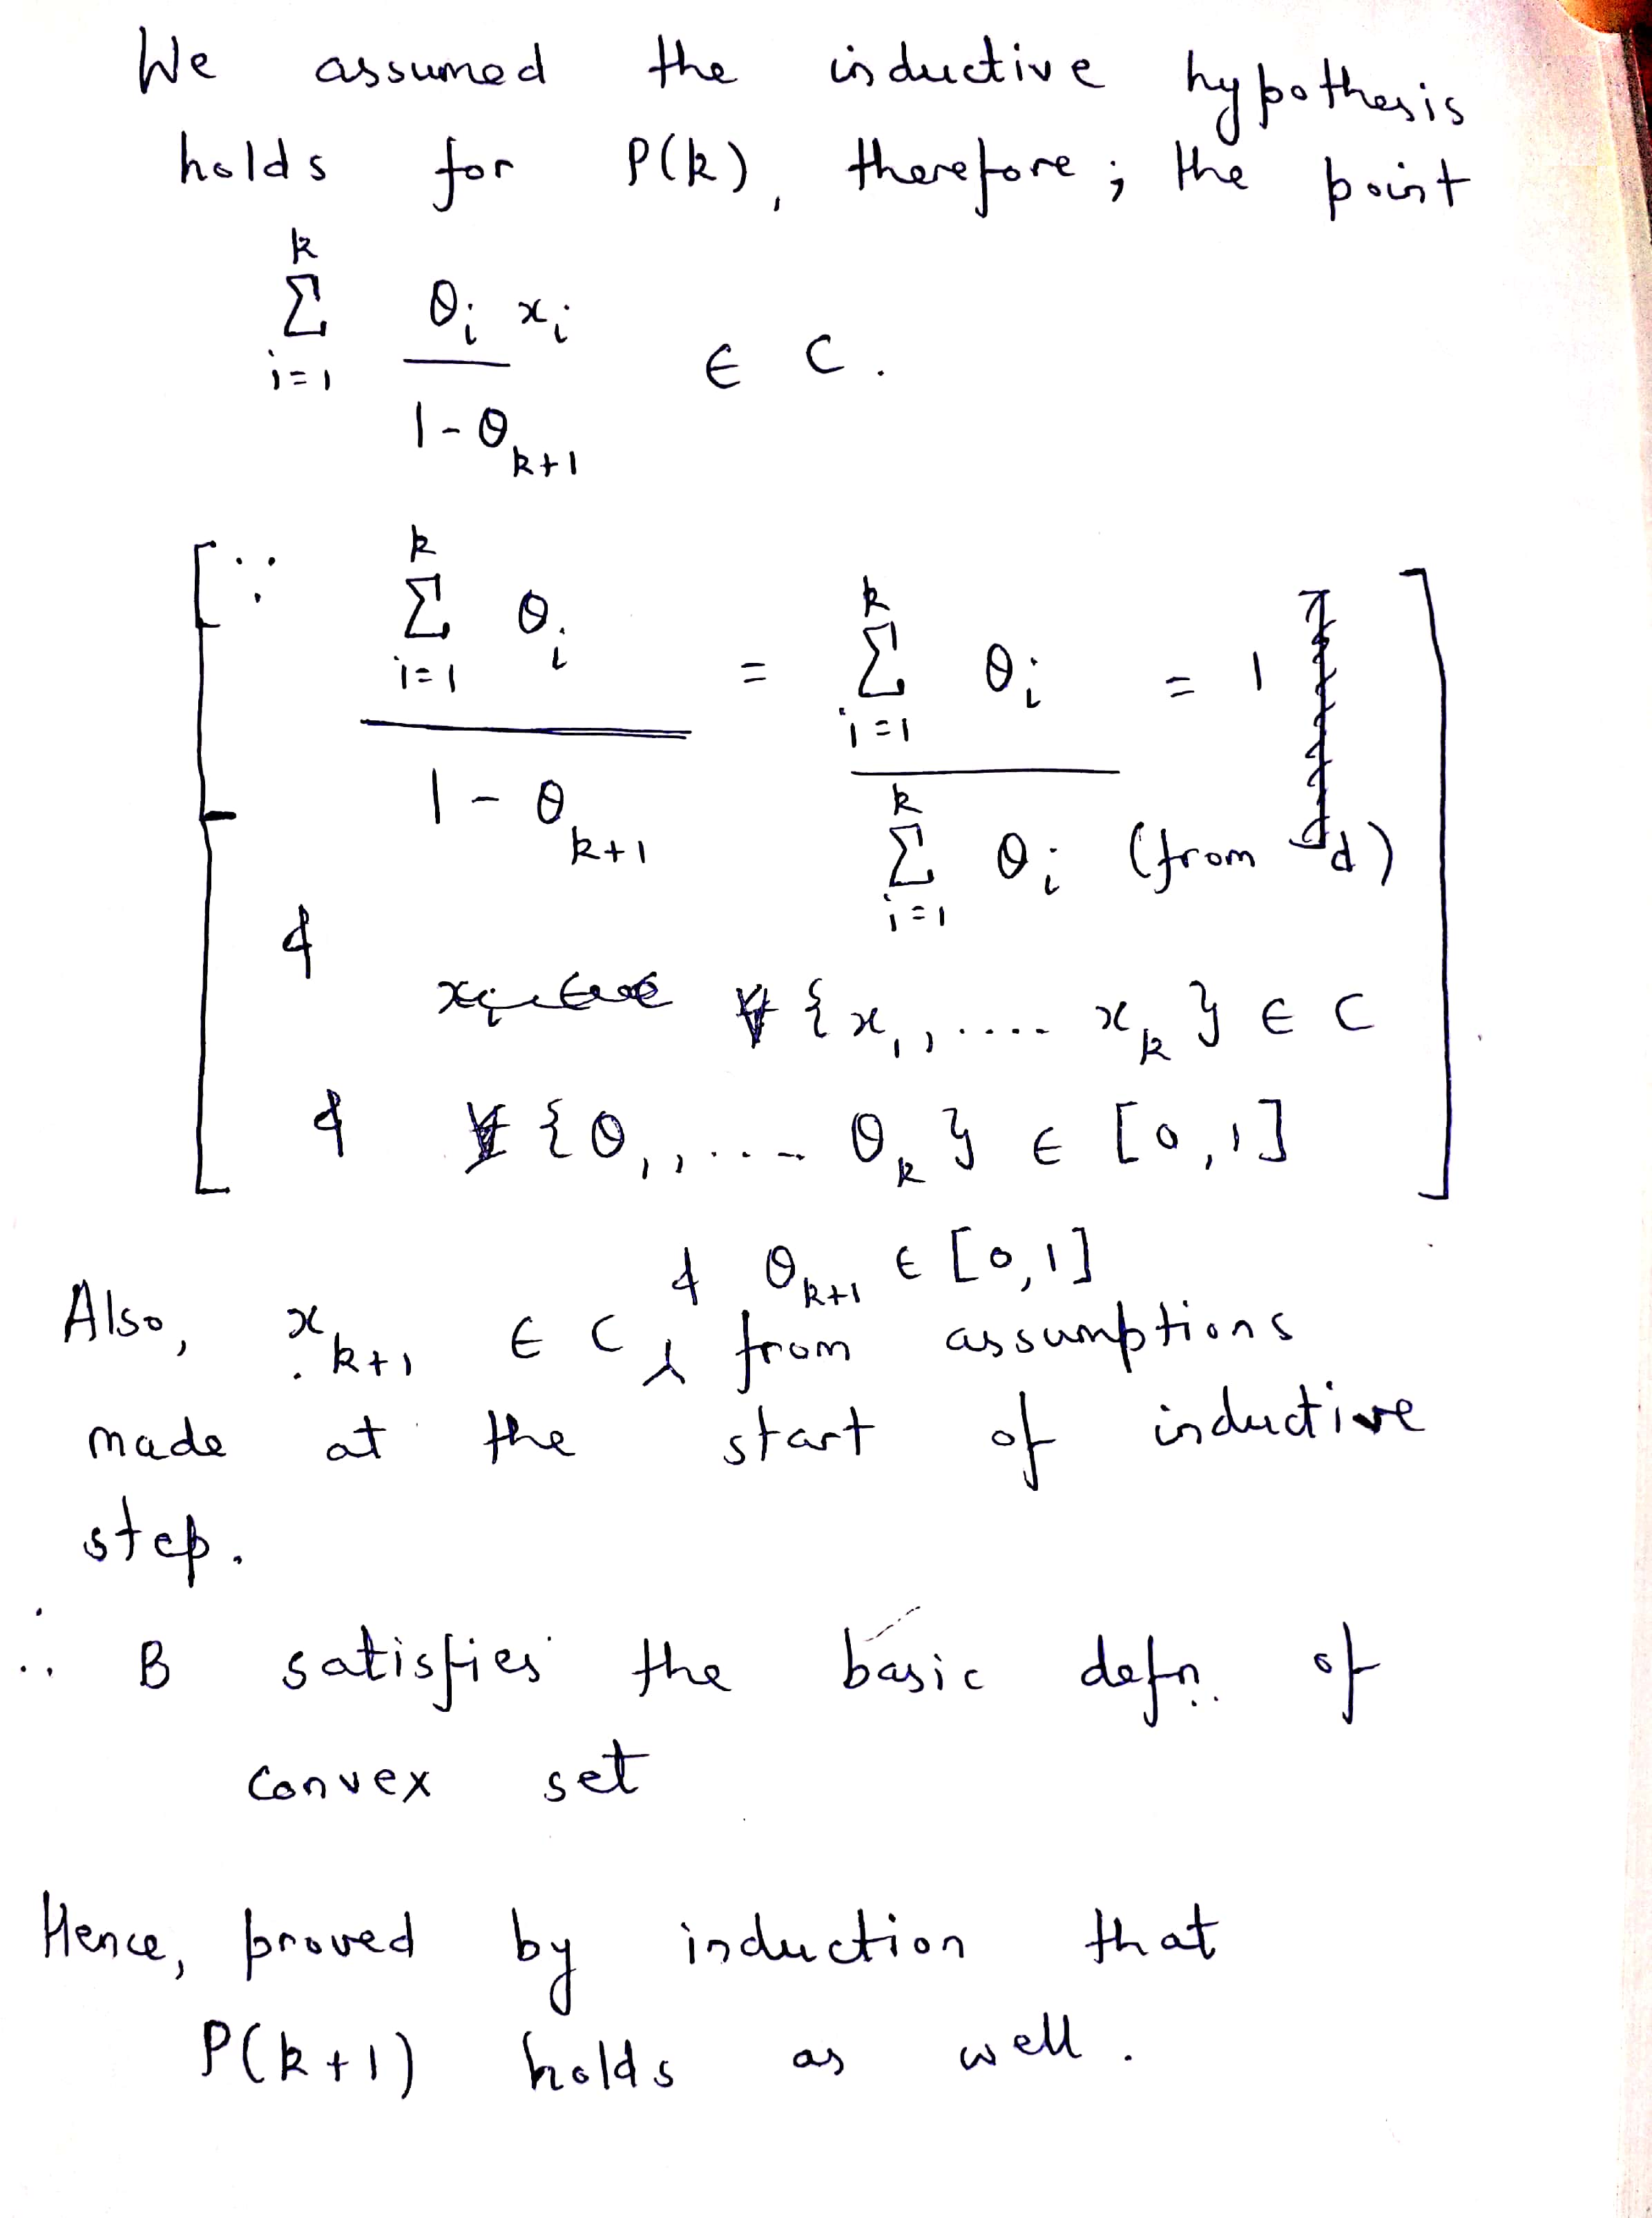 We assumed the inductive hypothesis
holds for P(k), therefore; the point
k
Σ θi xi
i=1 1-θk+1 ∈ C.
[∵ k
Σ θi
i=1
1-θk+1
=
k
Σ θi
i=1
k
Σ θi
i=1
= 1
(from d)
& ∀ {x1, .... xk} ∈ C
& ∀ {θ1, .... θk} ∈ [0,1] ]
& θk+1 ∈ [0,1]
Also, xk+1 ∈ C from assumptions
made at the start of inductive
step.
∴ B satisfies the basic defn. of
convex set
Hence, proved by induction that
P(k+1) holds as well.